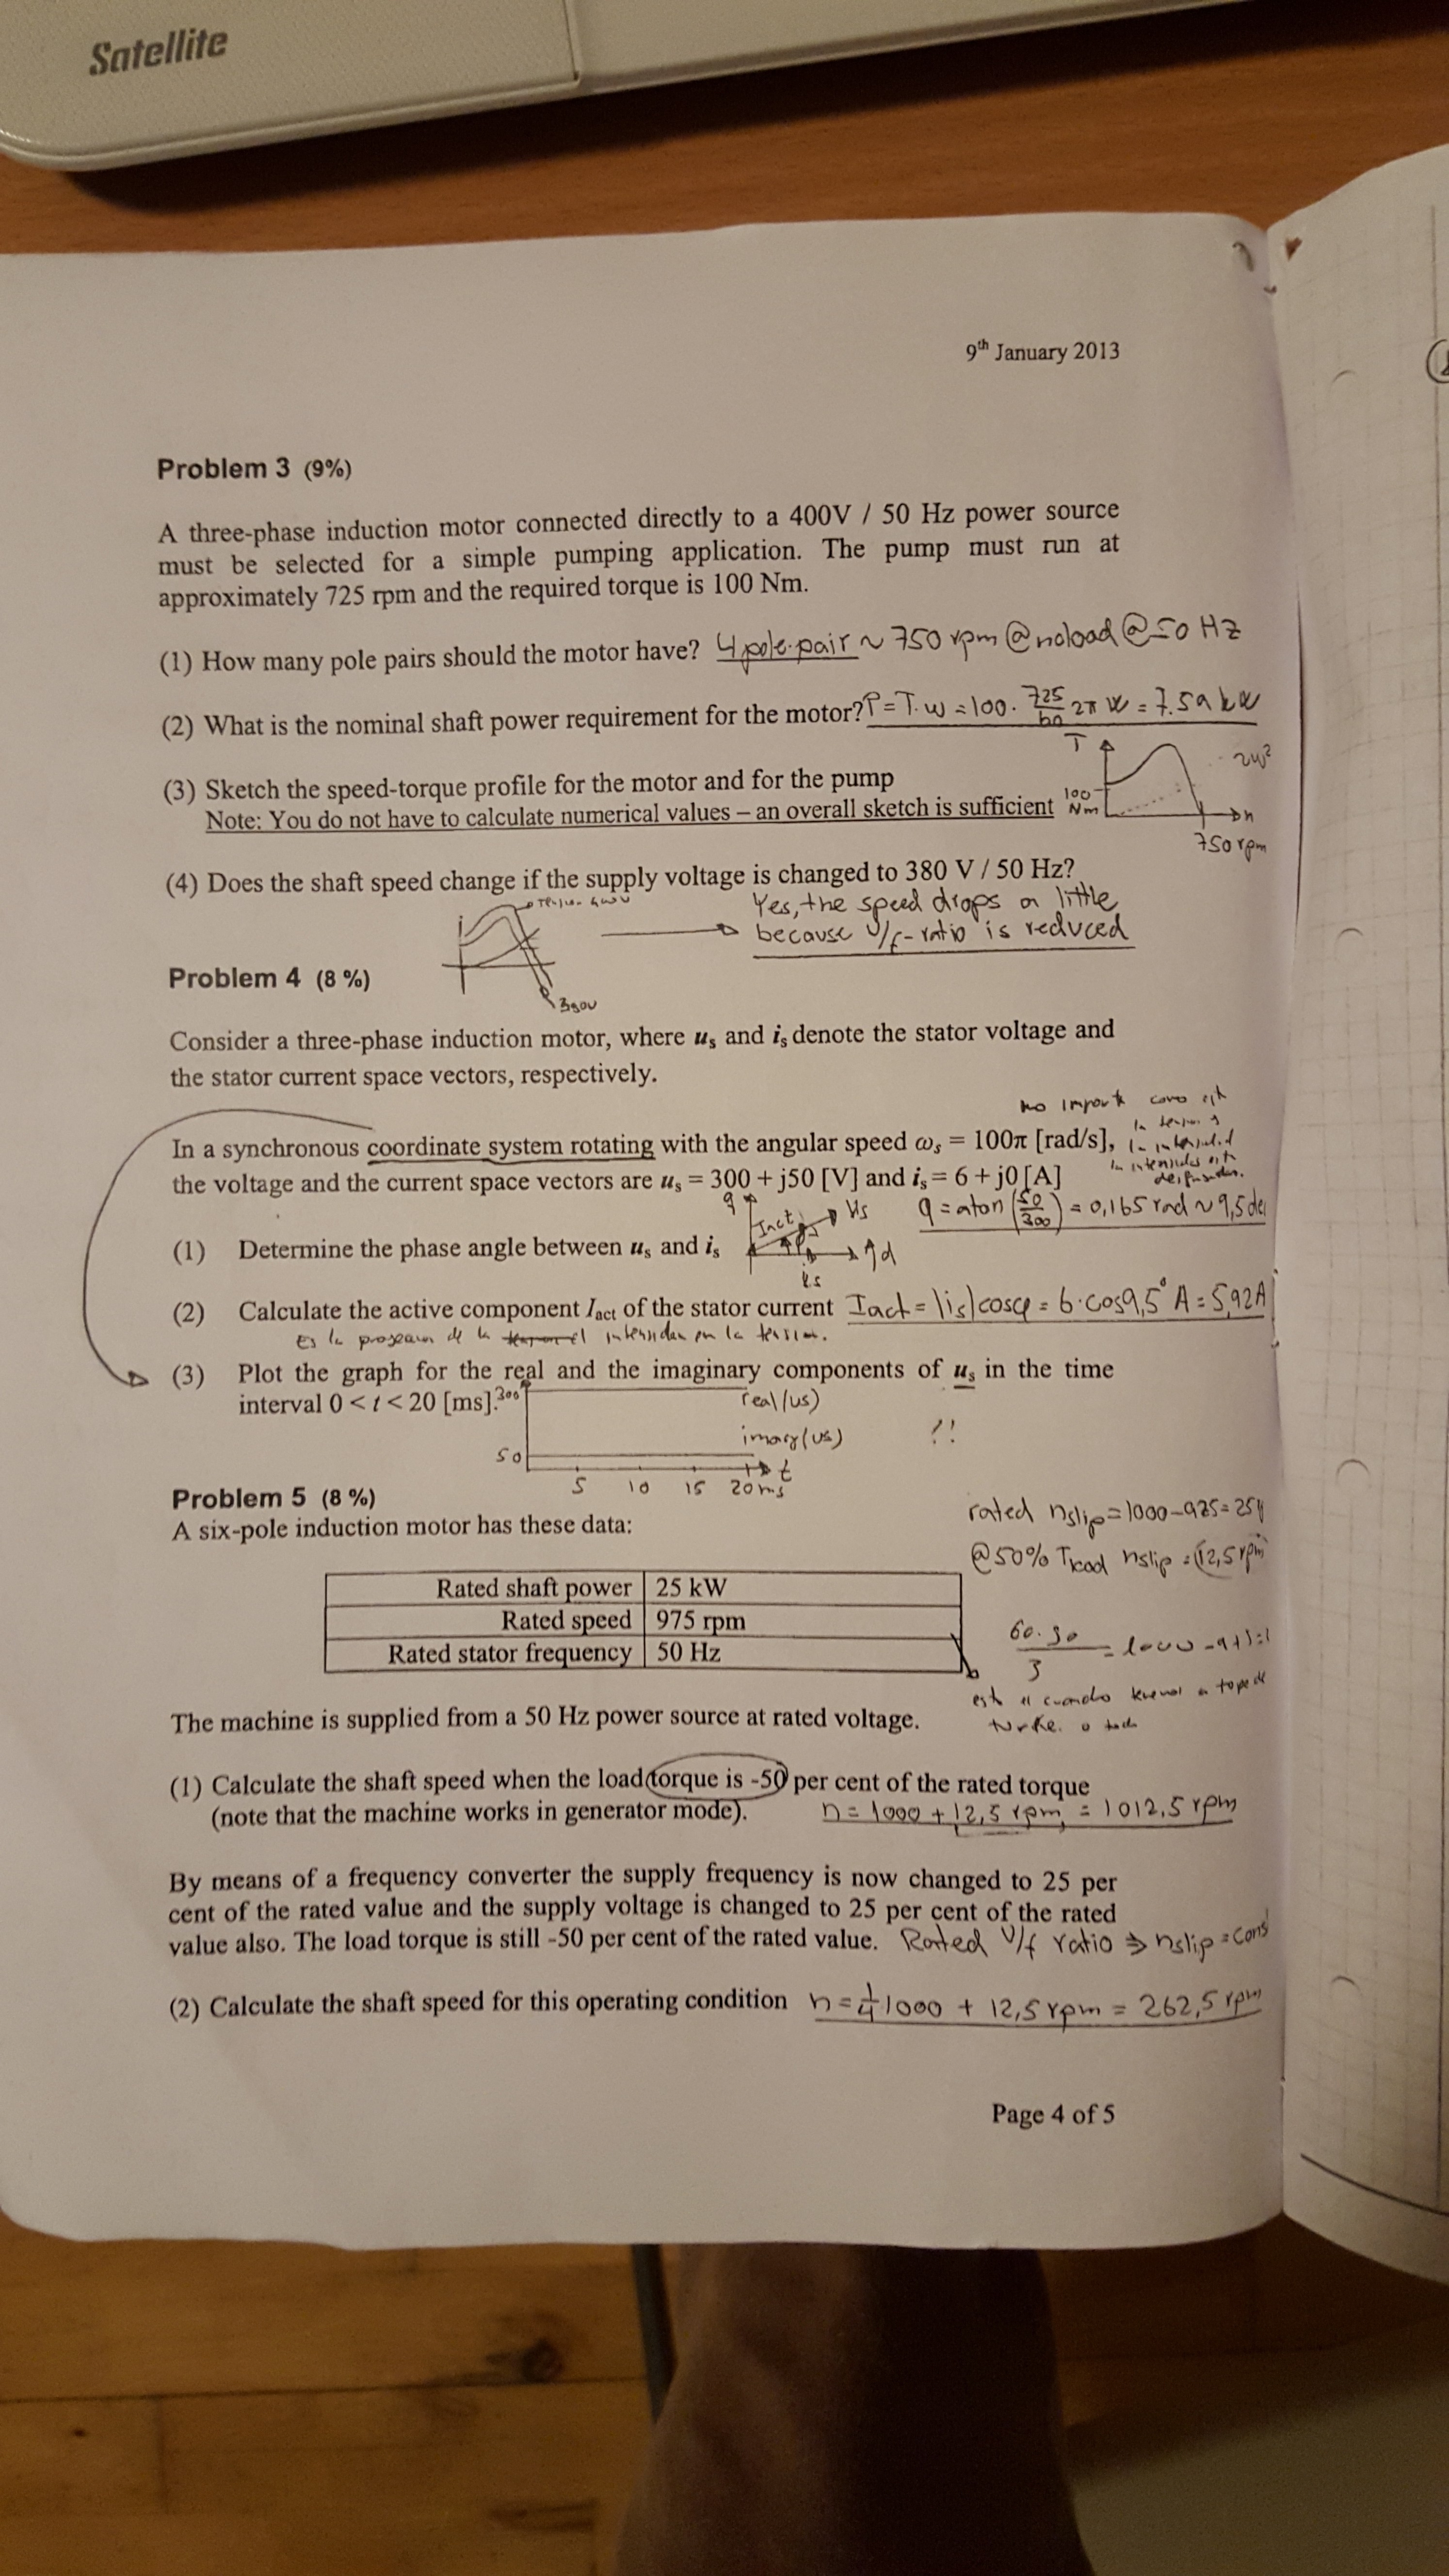 Satellite
9th January 2013
Problem 3 (9%)
A three-phase induction motor connected directly to a 400V / 50 Hz power source
must be selected for a simple pumping application. The pump must run at
approximately 725 rpm and the required torque is 100 Nm.
(1) How many pole pairs should the motor have? 4 pole-pair ~ 750 rpm @noload @50 Hz
(2) What is the nominal shaft power requirement for the motor? P = T·w = 100 · 725/60 2π W = 7.59 kW
(3) Sketch the speed-torque profile for the motor and for the pump
Note: You do not have to calculate numerical values – an overall sketch is sufficient
T
~w²
100
Nm
n
750 rpm
(4) Does the shaft speed change if the supply voltage is changed to 380 V / 50 Hz?
Yes, the speed drops a little
because U/f-ratio is reduced
380V
Problem 4 (8 %)
Consider a three-phase induction motor, where us and is denote the stator voltage and
the stator current space vectors, respectively.
no importa como
In a synchronous coordinate system rotating with the angular speed ωs = 100π [rad/s],
the voltage and the current space vectors are us = 300 + j50 [V] and is = 6 + j0 [A]
φ = atan (50/300) = 0,165 rad ~ 9,5 de
q
Iact
Us
φ
d
is
(1) Determine the phase angle between us and is
(2) Calculate the active component Iact of the stator current Iact = |is| cosφ = 6·cos9,5° A = 5,92A
Es la de la intensidad en la tension.
(3) Plot the graph for the real and the imaginary components of us in the time
interval 0 < t < 20 [ms].
300
real(us)
imag(us)
!!
50
t
5 10 15 20ms
Problem 5 (8 %)
A six-pole induction motor has these data:
rated nslip = 1000-975 = 25
@50% Tload nslip = 12,5 rpm
Rated shaft power 25 kW
Rated speed 975 rpm
Rated stator frequency 50 Hz
The machine is supplied from a 50 Hz power source at rated voltage.
(1) Calculate the shaft speed when the load torque is -50 per cent of the rated torque
(note that the machine works in generator mode). n = 1000 + 12,5 rpm = 1012,5 rpm
By means of a frequency converter the supply frequency is now changed to 25 per
cent of the rated value and the supply voltage is changed to 25 per cent of the rated
value also. The load torque is still -50 per cent of the rated value. Rated U/f ratio ⇒ nslip = const
(2) Calculate the shaft speed for this operating condition n = 1/4 1000 + 12,5 rpm = 262,5 rpm
Page 4 of 5